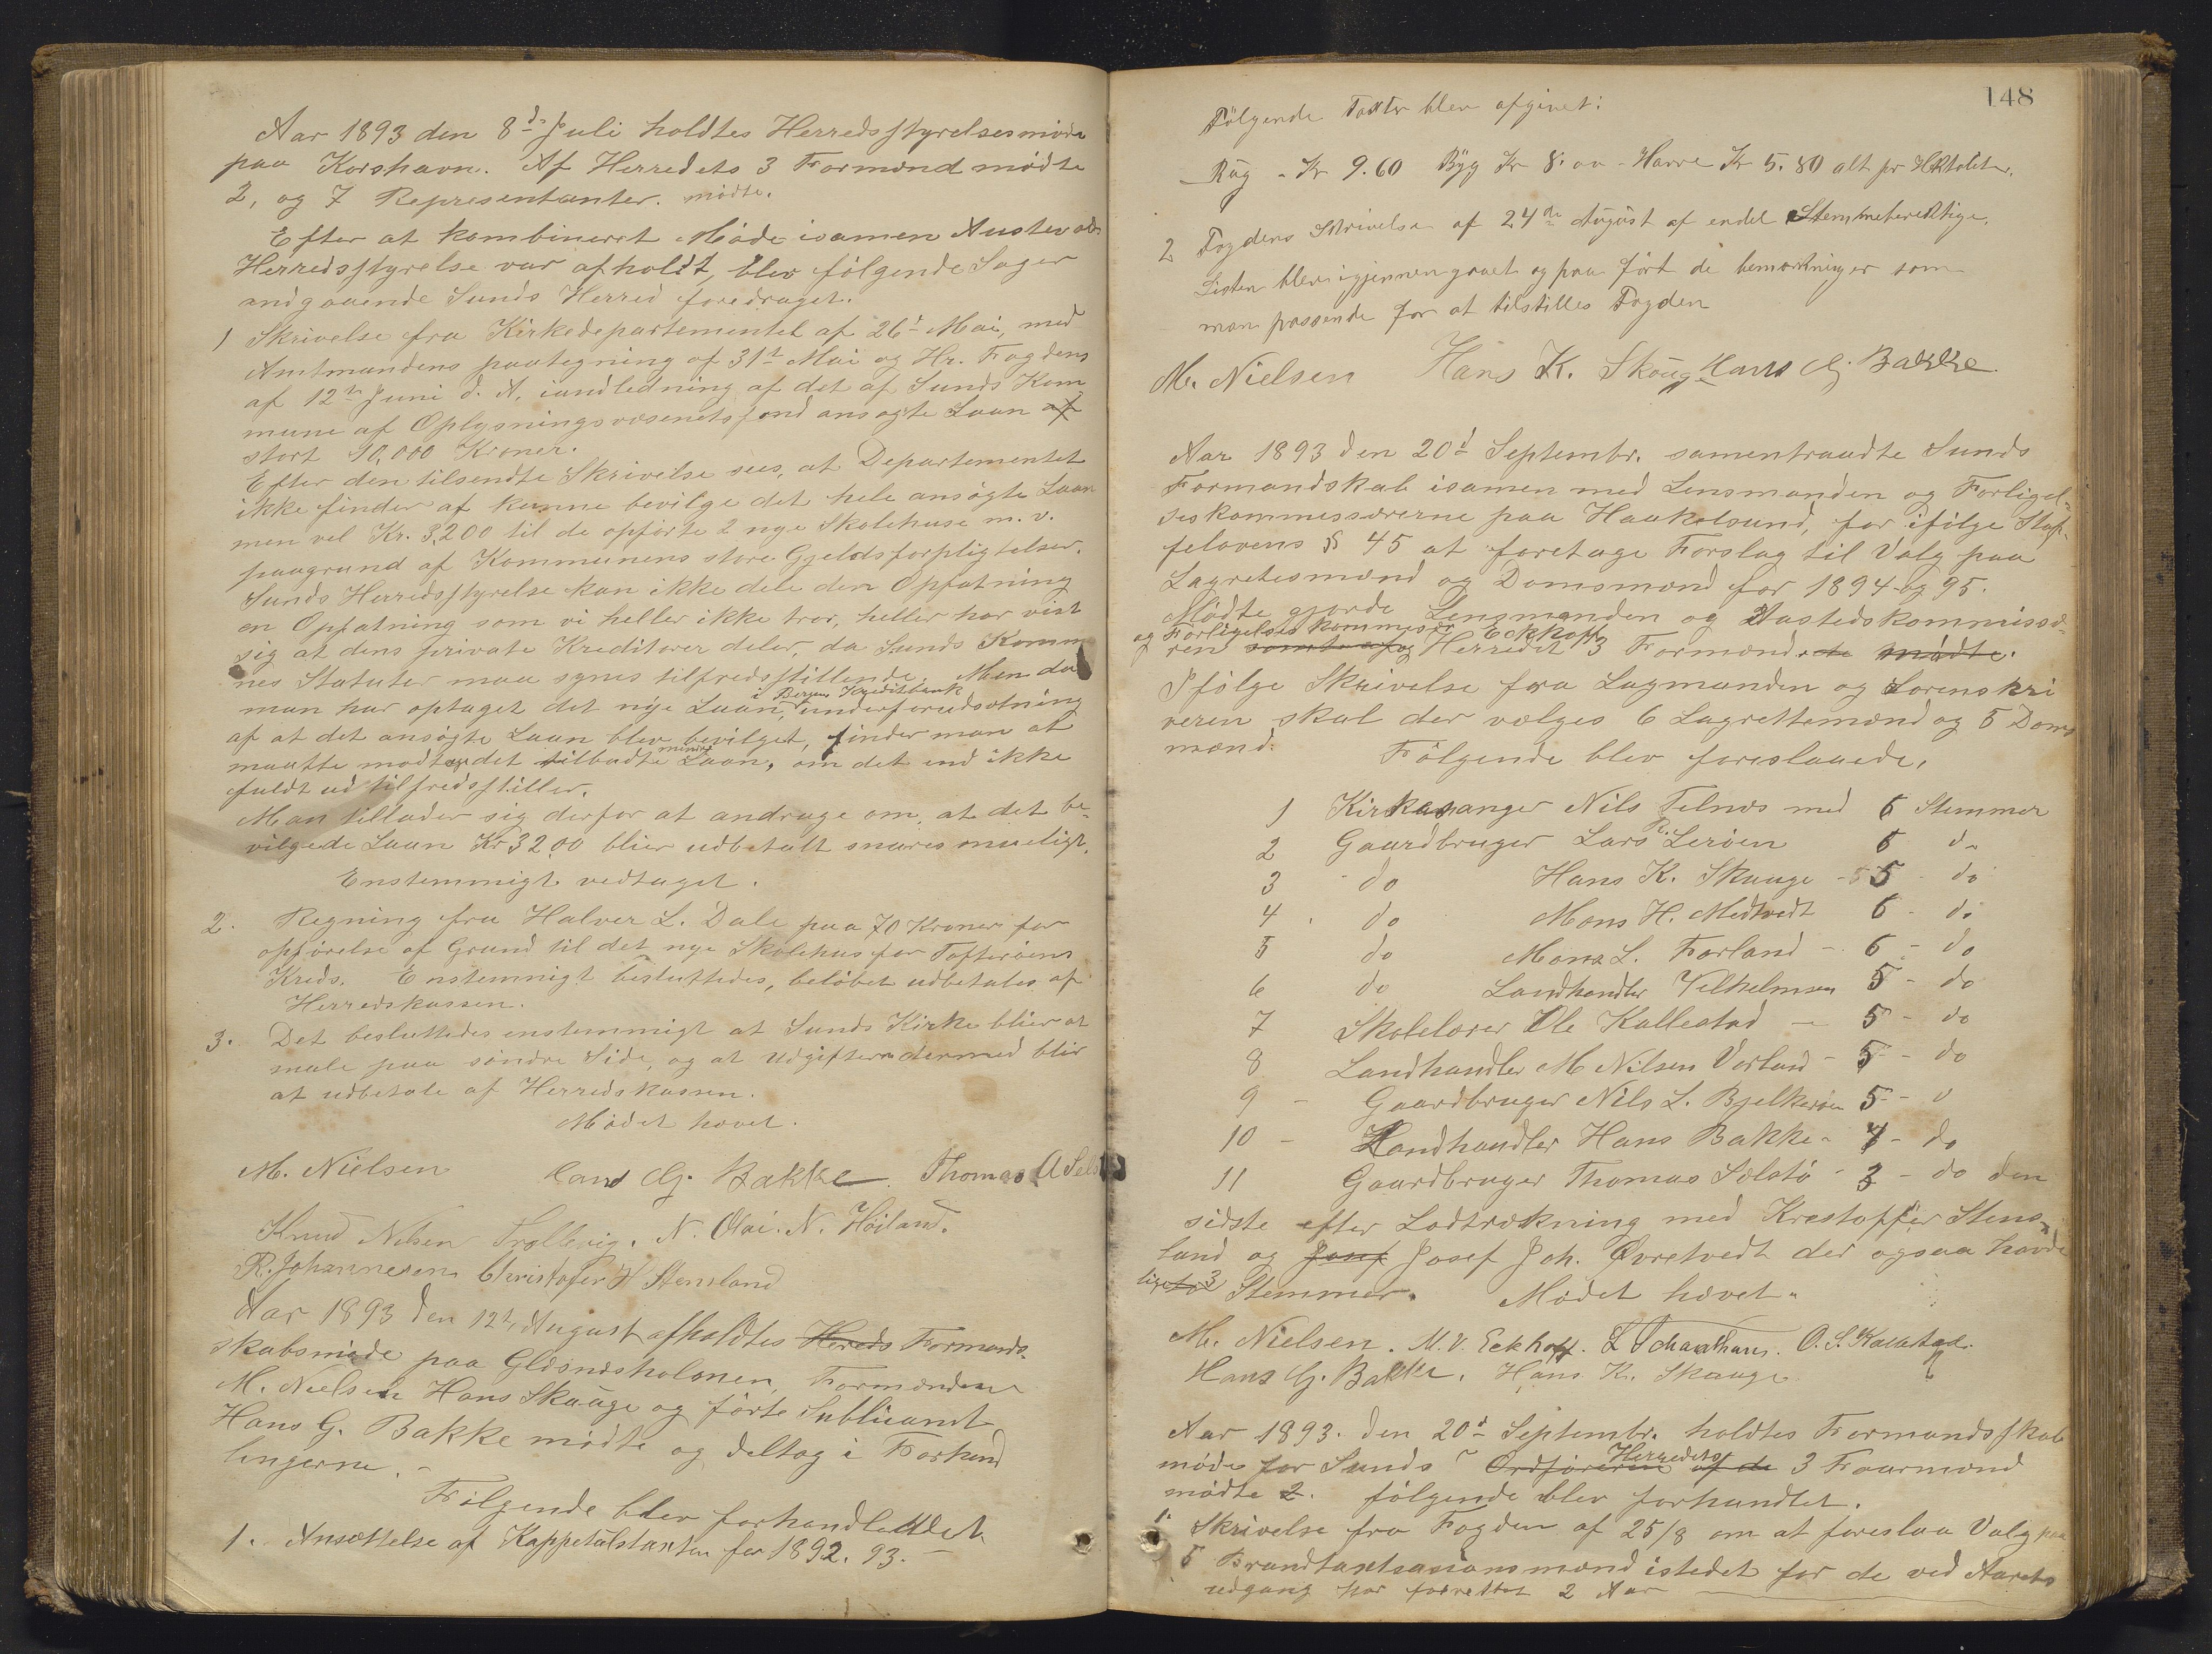 Aar 1893 den 8d Juli holdtes Herredsstyrelsesmøde
paa Korshavn. Af Herredets 3 Formænd mødte
2, og 7 Representanter. mødte.
Efter at kombineret Møde isamen Austevolds
Herredsstyrelse var afholdt, blev følgende Sager
andgaaende Sunds Herred foredraget.
1 Skrivelse fra Kirkedepartementet af 26d Mai, med
Amtmandens paategning af 31te Mai og Hr. Fogdens
af 12te Juni d. A. iandledning af det af Sunds Kom
mune af Oplysningsvæsenets fond ansøgte Laan af
stort 10,000 Kroner.
Efter den tilsendte Skrivelse sees, at Departementet
ikke finder af kunne bevilge det hele ansøgte Laan
men vel Kr. 3,200 til de opførte 2 nye Skolehuse m. v.
paagrund af Kommunens store Gjeldsforpligtelser.
Sunds Herredsstyrelse kan ikke dele den Opfatning
en Opfatning som vi heller ikke tror, heller har vist
sig at dens private Kreditorer deler, da Sunds Komm
nes Statuter maa synes tilfredsstillende. Men da
man har optaget det nye Laan, i Bergens Kreditbank underforudsætning
af at det ansøgte Laan blev bevilget, finder man at
maatte modtage det tilbudte mindre Laan, om det end ikke
fuldt ud tilfredsstiller.
Man tillader sig derfor at andrage om, at det be-
vilgede Laan Kr 3200 bliver udbetalt snares mueligt.
Enstemmigt vedtaget.
2. Regning fra Halver L. Dale paa 70 Kroner for
opførelse af Grund til det nye Skolehus for Tofterøens
Kreds. Enstemmigt besluttedes, beløbet udbetales af
Herredskassen.
3. Det besluttedes enstemmigt at Sunds Kirke bliver at
male paa søndre Side, og at Udgifterne dermed blir
at udbetale af Herredskassen.
Mødet hævet.
M. Nielsen Hans G. Bakke. Thomas A Sels
Knud Nilsen Trollevig. N. Olai. N. Høiland.
R. Johannesen Christofer H Stensland
Aar 1893 den 12te August afholdtes Hereds Formands-
skabsmøde paa Glæsnesholmen, Formændene
M. Nielsen Hans Skauge og førte Subliuant
Hans G. Bakke mødte og deltog i Forhand
lingerne.
Følgende blev forhandlet
1. Ansættelse af Kappetalstaxten for 1892. 93.
148
Følgende Taxter blev afgivet:
Rug - Kr 9.60 Byg Kr 8.00 - Havre Kr 5.80 alt pr Hktoliter.
2 Fogdens Skrivelse af 24de August af endel Stemmeberettige.
Listen blev igjennemgaaet og paa ført de bemærkninger som
man passende for at tilstilles Fogden
M. Nielsen Hans K. Skauge Hans G. Bakke
Aar 1893 den 20d Septembr. samentraadte Sunds
Formandskab isamen med Lensmanden og Forligel-
seskommessærerne paa Haakelsund, for ifølge Staf-
felovens § 45 at foretage Forslag til Valg paa
Lagretesmænd og Domsmænd for 1894 og 95.
Mødte gjorde Lensmanden og Aastedskommissæ-
og Forligelses kommesær Eckhoff
ren samt af og Herredet 3 Formænd. de mødte.
Ifølge Skrivelse fra Lagmanden og Sorenskri
veren skal der vælges 6 Lagrettemænd og 5 Doms
mænd.
Følgende blev foreslaaede.
1 Kirkesanger Nils Telnes med 6 Stemmer
2 Gaardbruger Lars P. Lerøen 6 do
3 do Hans K. Skauge - 5 - do
4 do Mons H. Medtvedt 6 - do
5 do Mons L. Forland - 6 - do
6 do Landhandler Vilhelmsen 5 - do
7 Skolelærer Ole Kallestad - 5 - do
8 Landhandler M Nilsen Vorland - 5 - do
9 - Gaardbruger Nils L. Bjelkerøen 5 - d
10 - Landhandler Hans Bakke - 4 - do
11 Gaardbruger Thomas Selstø - 3 - do den
sidste efter Lodtrækning med Krestoffer Stens-
land og Josef Josef Joh. Øvretvedt der ogsaa havde
ligeto 3 Stemmer. Mødet hævet.
M. Nielsen. M. V. Eckhoff. O. S. Kallestad.
Hans G. Bakke. Hans K. Skauge
Aar 1893. den 20d Septembr. holdtes Formandsskab
møde for Sunds Ordføreren af de Herredets 3 Foarmænd
mødte 2. følgende blev forhandlet.
1. Skrivelse fra Fogden af 25/8 om at foreslaa Valg paa
5 Brandtaxtasionsmænd istedet for de ved Aarets
udgang har forrettet 2 Aar